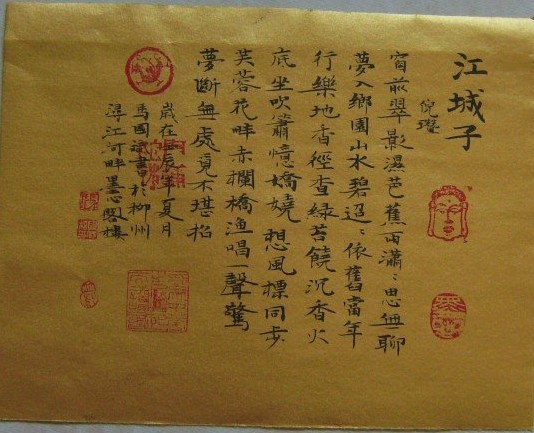 江城子
倪瓚
窗前翠影濕芭蕉雨瀟〻思無聊
夢入鄉園山水碧迢〻依舊當年
行樂地香徑杳綠苔饒沉香火
底坐吹簫憶嬌嬈想風標同步
芙蓉花畔赤欄橋漁唱一聲驚
夢斷無處覓不堪招
歲在壬辰年夏月
馬國斌書於柳州
潯江河畔墨心閣樓